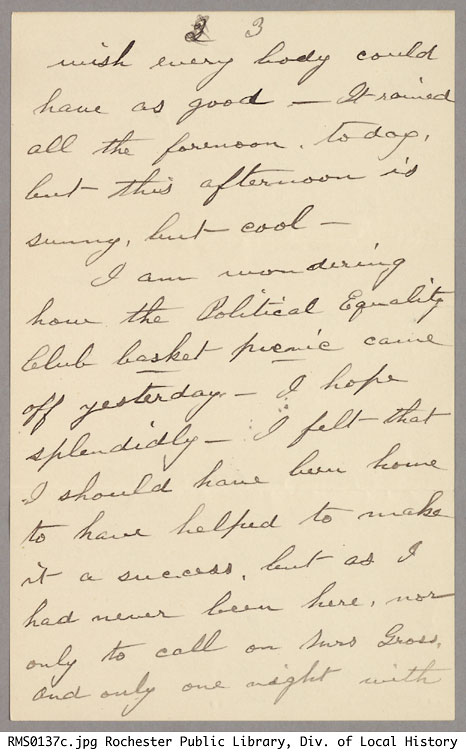 3 3
wish every body could
have as good - It rained
all the forenoon, today,
but this afternoon is
sunny, but cool -
I am wondering
how the Political Equality
Club basket picnic came
off yesterday - I hope
splendidly - I felt that
I should have been home
to have helped to make
it a success, but as I
had never been here, nor
only to call on Mrs Gross,
and only one night with
RMS0137c.jpg Rochester Public Library, Div. of Local History